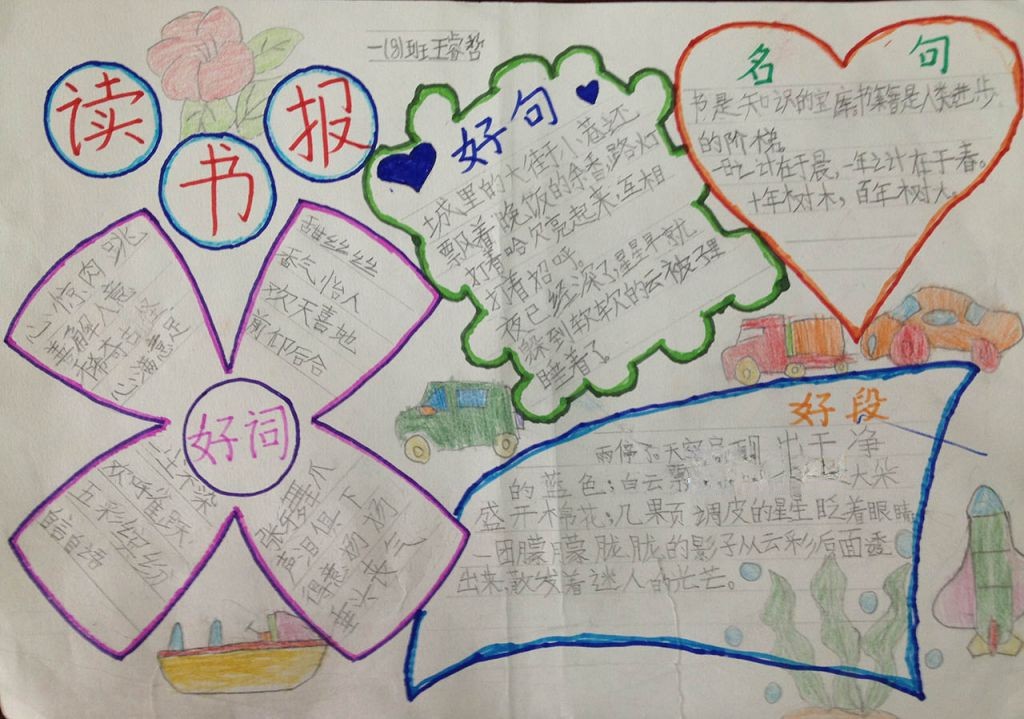 一(8)班王睿哲
读书报
好词
心惊肉跳
善解人意
稀奇古
心满意足
甜丝丝
香气怡人
欢天喜地
前仰后合
一尘不染
欢呼雀跃
五彩缤纷
张牙舞爪
得意扬扬
垂头丧气
好句
城里的大街小巷还
飘着晚饭的余香,路灯
打着哈欠亮起来,互相
打着招呼。
夜已经深了,星星早就
躲到软软的云被子里
睡着了。
名句
书是知识的宝库书籍是人类进步
的阶梯。
一日之计在于晨,一年之计在于春。
十年树木,百年树人。
好段
雨停了。天空 出干净
的蓝色;白云 大朵
盛开棉花;几颗顽调皮的星星眨着眼睛
一团朦朦胧胧的影子从云彩后面透
出来,散发着迷人的光芒。